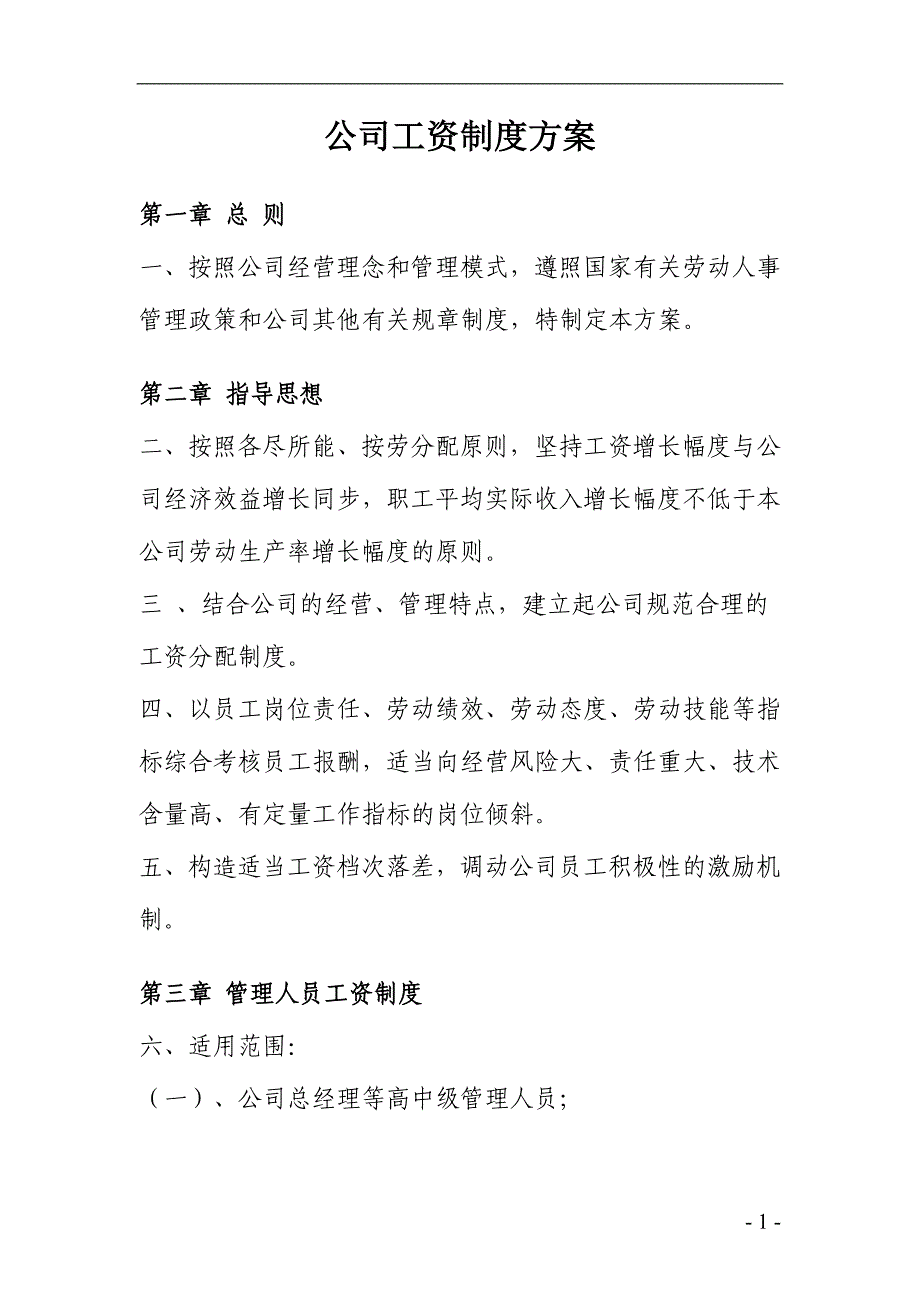 公司工资制度方案
第一章 总 则
一、按照公司经营理念和管理模式，遵照国家有关劳动人事
管理政策和公司其他有关规章制度，特制定本方案。
第二章 指导思想
二、按照各尽所能、按劳分配原则，坚持工资增长幅度与公
司经济效益增长同步，职工平均实际收入增长幅度不低于本
公司劳动生产率增长幅度的原则。
三 、结合公司的经营、管理特点，建立起公司规范合理的
工资分配制度。
四、以员工岗位责任、劳动绩效、劳动态度、劳动技能等指
标综合考核员工报酬，适当向经营风险大、责任重大、技术
含量高、有定量工作指标的岗位倾斜。
五、构造适当工资档次落差，调动公司员工积极性的激励机
制。
第三章 管理人员工资制度
六、适用范围：
（一）、公司总经理等高中级管理人员；
- 1 -